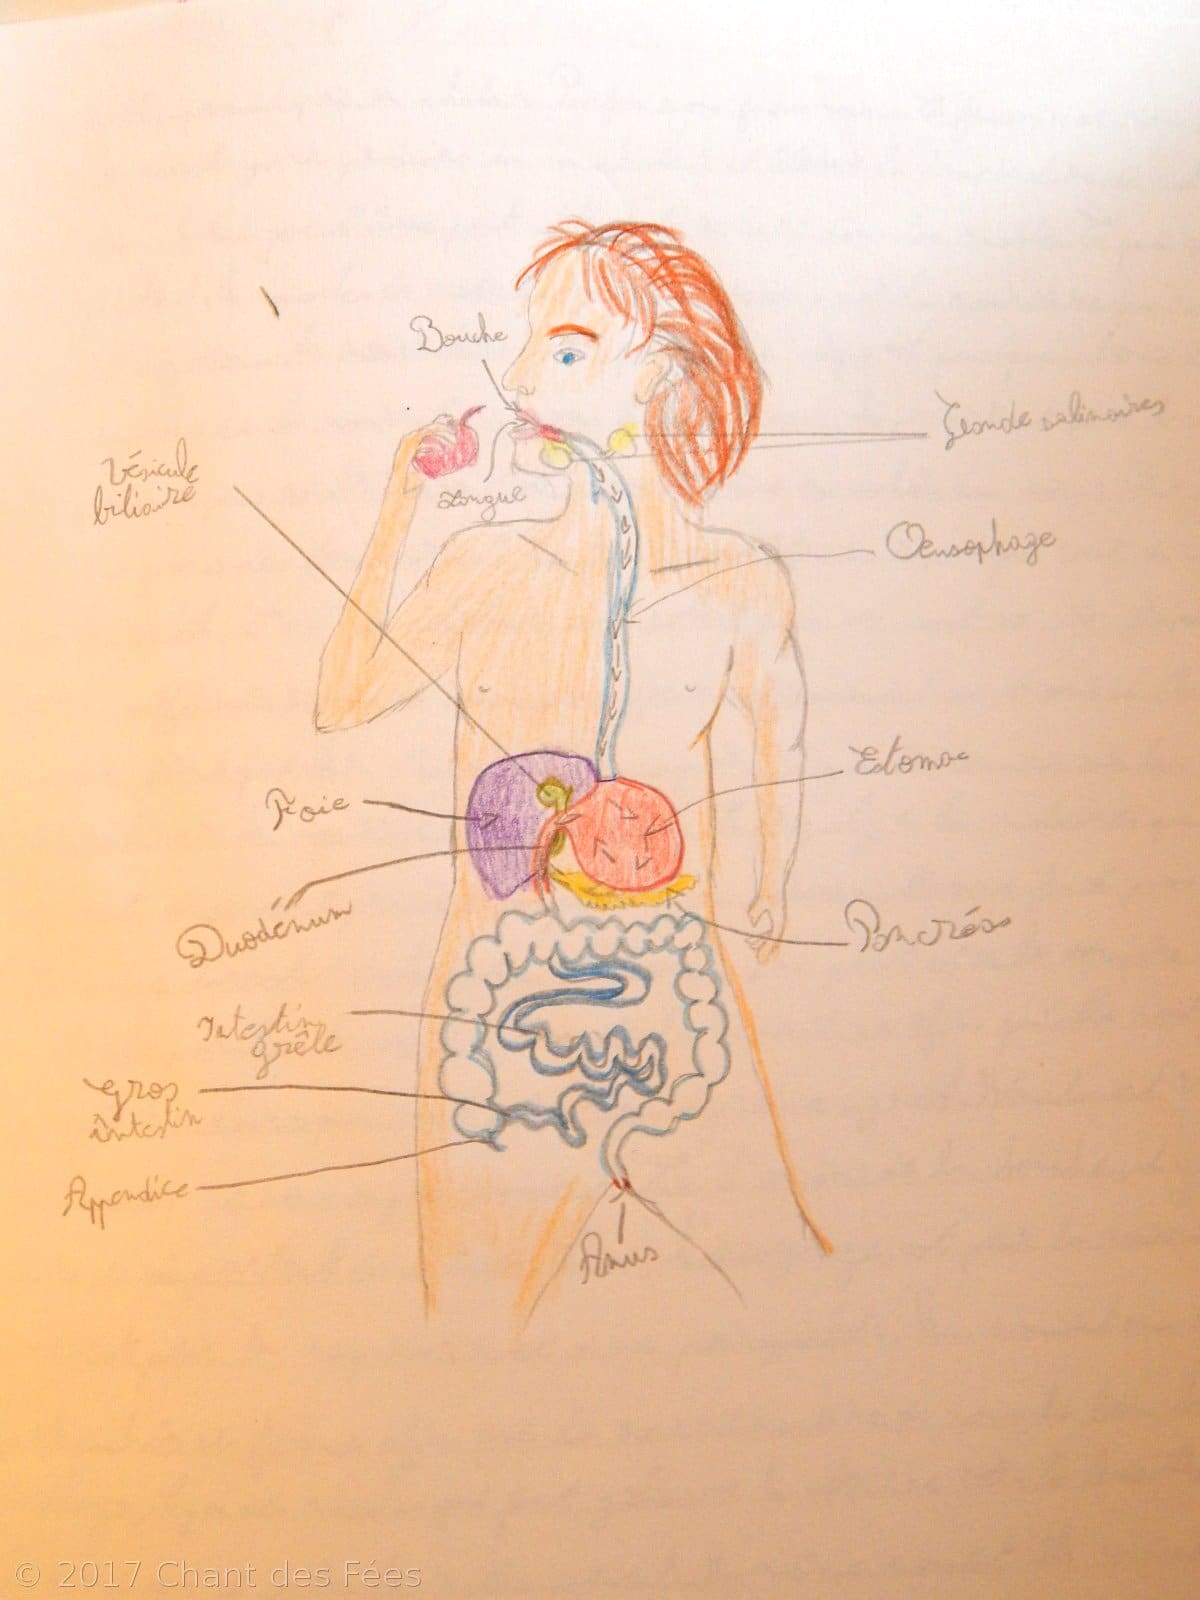 Bouche
Glande salivaires
Vésicule
biliaire
Langue
Oeusophage
Etomac
Foie
Duodénum
Pancréas
Intestin
grêle
Gros
intestin
Appendice
Anus
© 2017 Chant des Fées